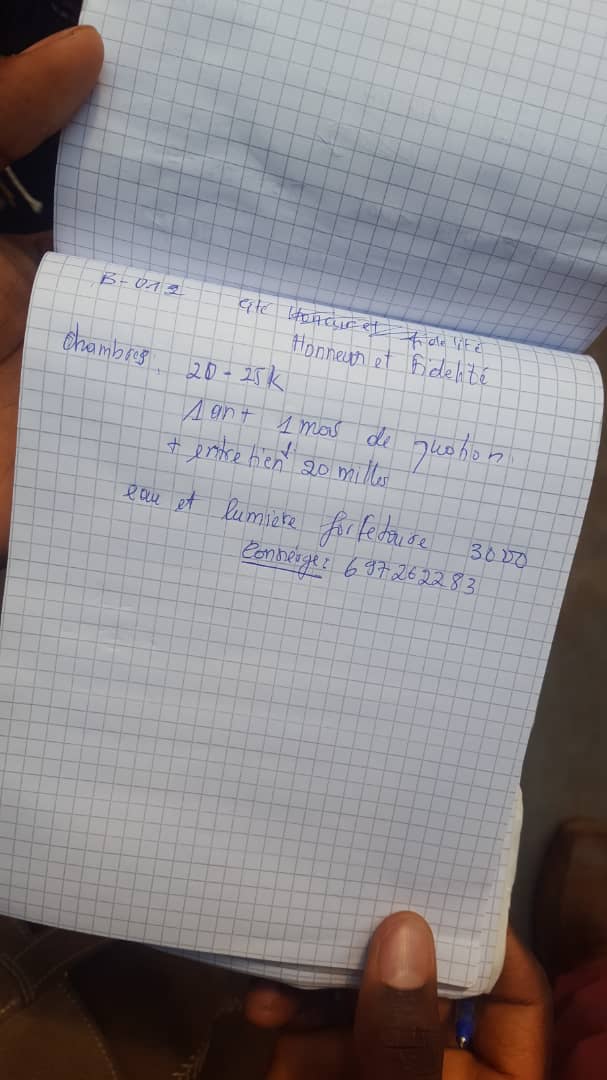 B-012
Cité Honneur et fidelité
Honneur et Fidelité
Chambres: 20-25k
1 an + 1 mois de quotion.
+ entretient 20 milles
eau et lumière forfetaire 3000
Conseirge: 697262283